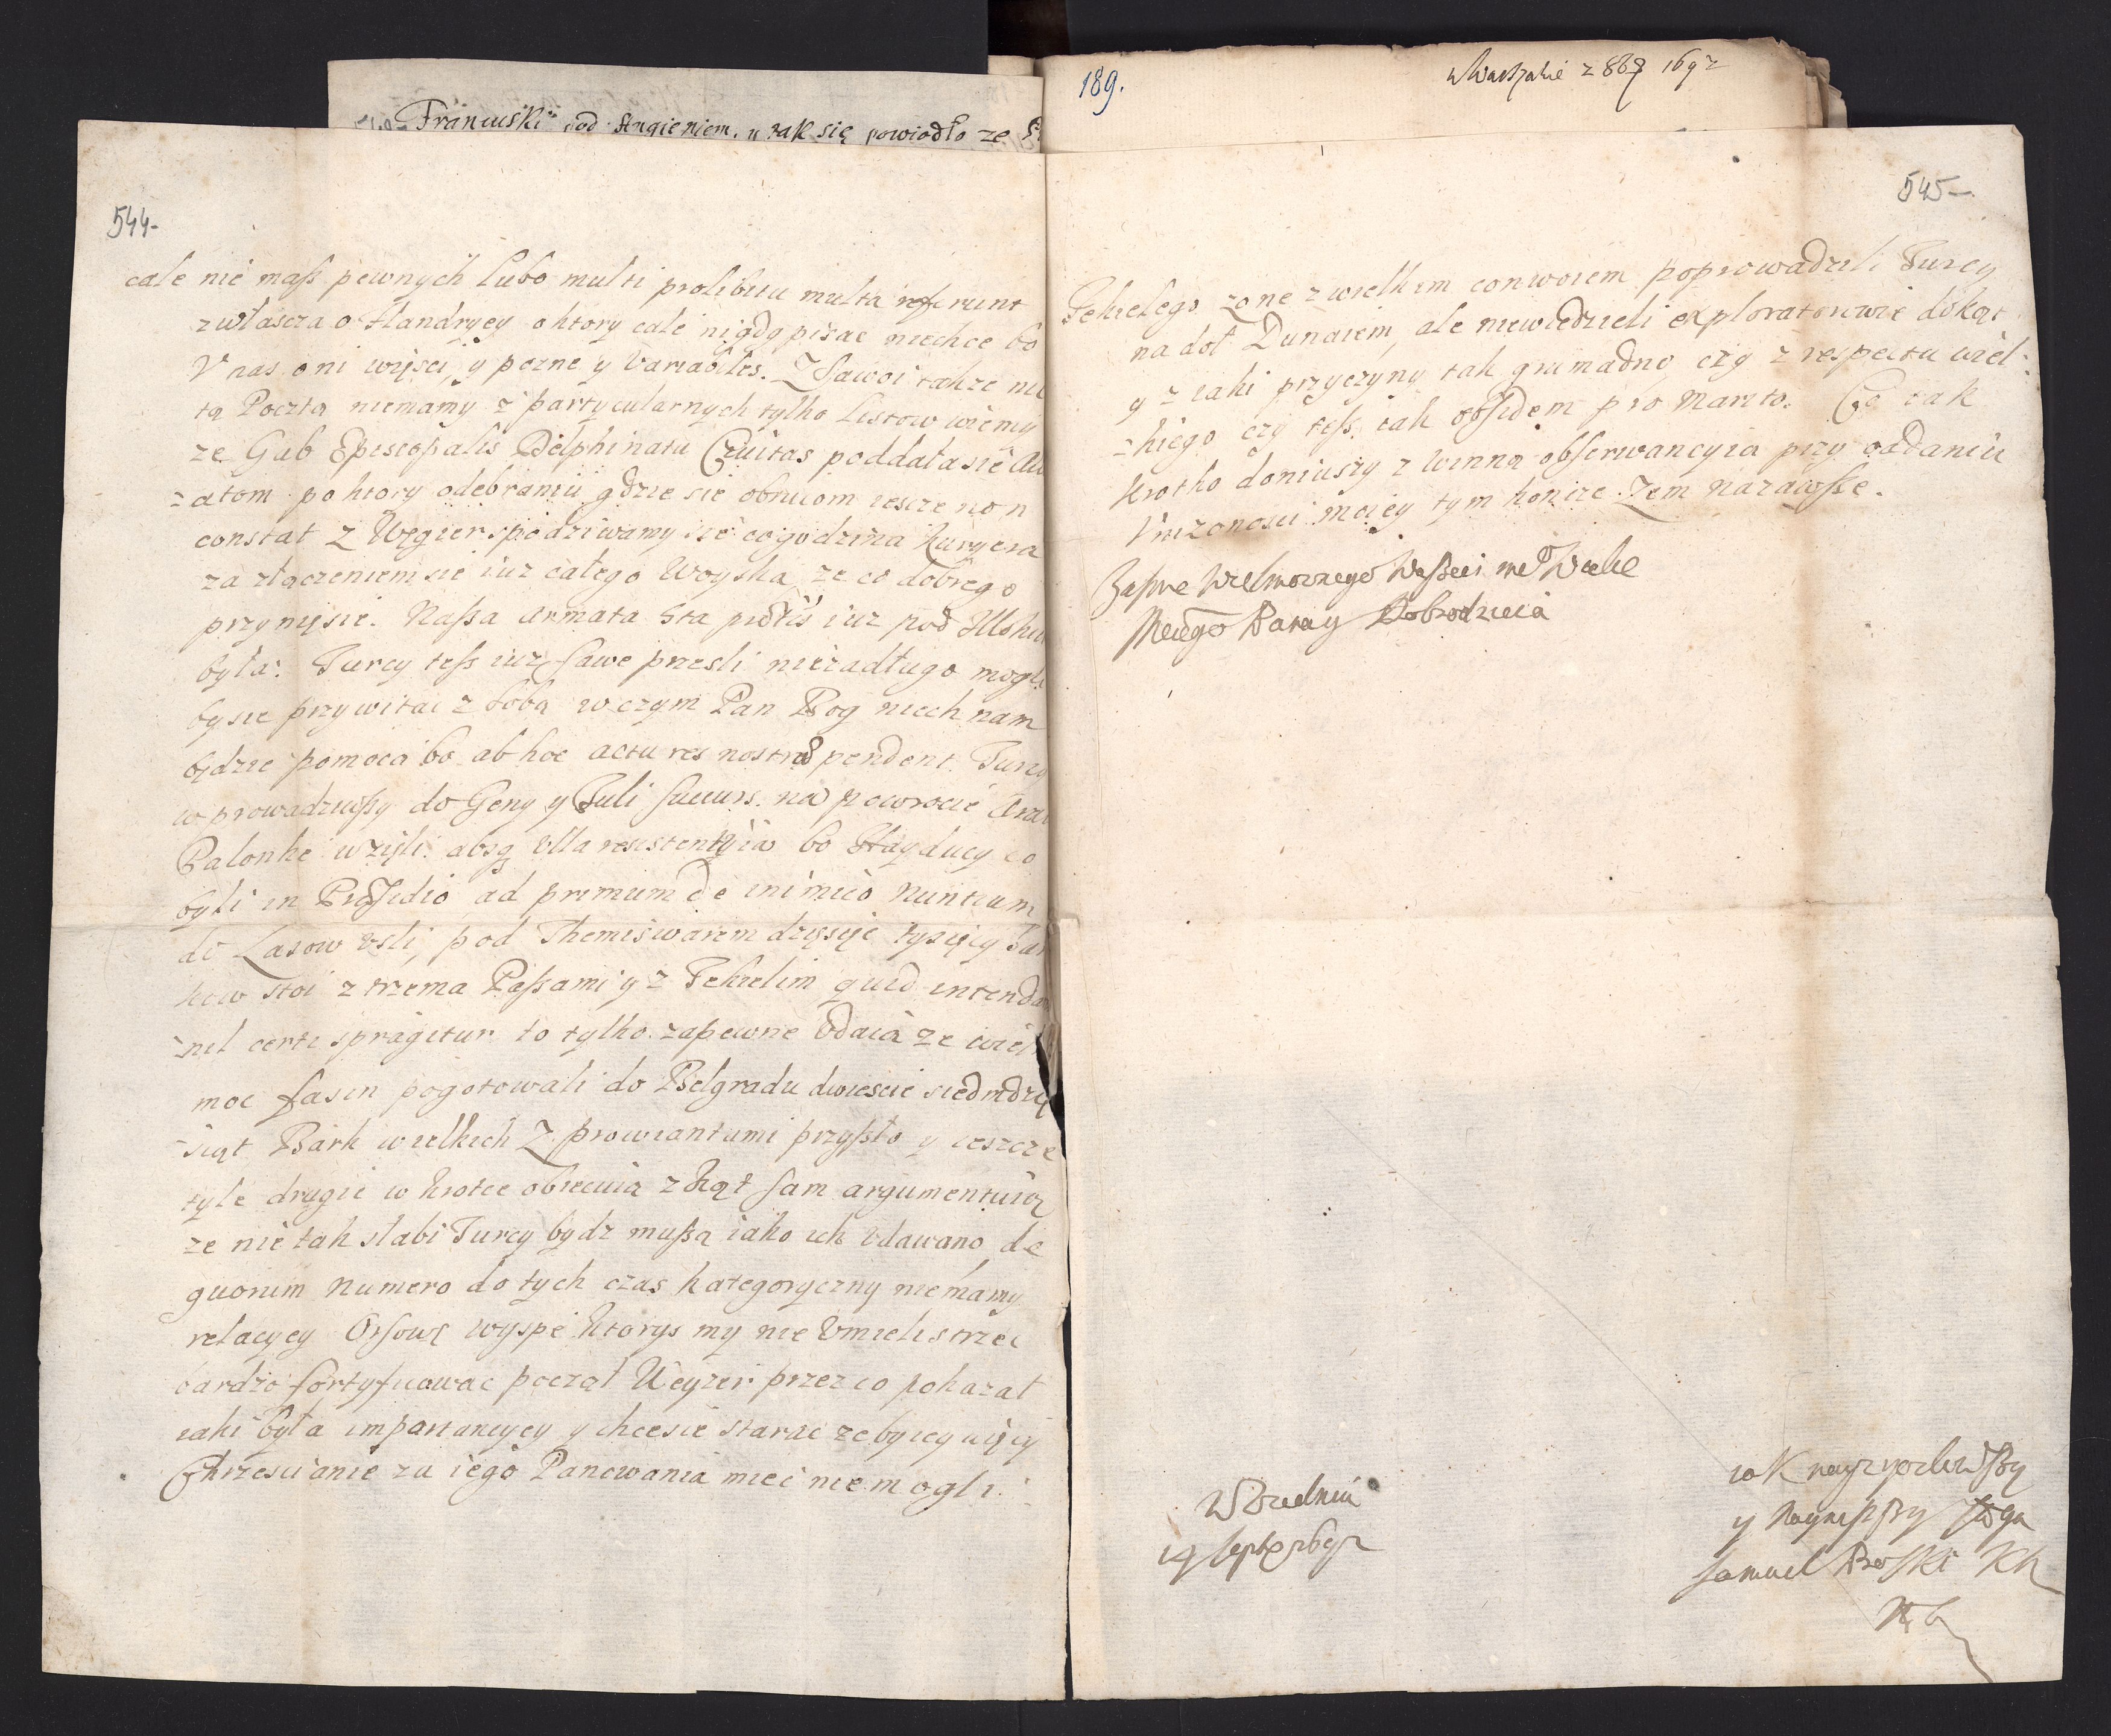 Francuski pod Angieniem. y tak się powiodło ze
189.
w Warszawie z 8bq 1692
544-
cale nie mass pewnych lubo multi prolibitu multa referunt
zwłascza o Flandryey o ktory cale nigdy pisac niechce bo
V nas oni więsci, y pozne y Variabiles. Z Sawoi takze
tą Pocztą niemamy z partycularnych tylko Listow wiemy
ze Gab Episcopalis Delphinatu Civitas poddała sie
-atom po ktory odebraniu gdzie sie obrucom iescze non
constat z Węgier spodziwamy sie co godzina Kuryera
za złączeniem sie iuz całego Woyska, ze co dobrego
przyniesie. Nassa armata sta iuz pod
była: Turcy tess iuz Sawe przesli niezadługo mogli
by sie przywitac z sobą w czym Pan Bog niech nam
będzie pomocą bo ab hoc actu res nostræ pendent. Turcy
wprowadziwssy do Geny y Juli succurs. na powrocie
Palonke wzięli absq Vlla resistentyia bo Hayducy co
byli in Præsidio ad primum de inimico Nuntium
do Lasow Vsli, pod Themiswarem dziesięc tysięcy
kow stoi z trzema Passami y z Tekielim quid intenda
-nil certi to tylko zapewne Vdaią ze wiel
moc fasin pogotowali do Belgradu dwiescie siedmdzie
-siąt Bark wielkich Z prowiantami przyssło y ieszcze
tyle drugie w krotce obiecuią zkąt sam argumentuią
ze nie tak słabi Turcy bydz mussą iako ich Vdawano de
quorum Numero do tych czas kategoryczny niemamy
relacyey Orsowę wyspe ktorys my nie Vmieli strzec
bardzo fortyficowac począł Weyzer przez co pokazał
iaki była importancyey y chce sie starac ze by iey więcy
Chrzescianie za iego Panowania miec niemogli.
545-
Tekielego zone z wielkim conwoiem poprowadzili Turcy
na doł Dunaiem, ale niewiedzieli exploratorowie dokąt
y z iaki przyczyny tak gromadno czy z respectu wiel-
-kiego czy tess iak obsidem pro Marito. Co tak
krotko doniuszy z winną obserwancyią przy oddaniu
Vnizonosci moiey tym koncze. Zem nazawsse.
Jasnie Wielmoznego Wassci me Wielce
Mego Pana y Dobrodzieia
W Wiedniu
14 Septębr 1692
iak nayzyczliwssy
y naynissy sługa
Samuel